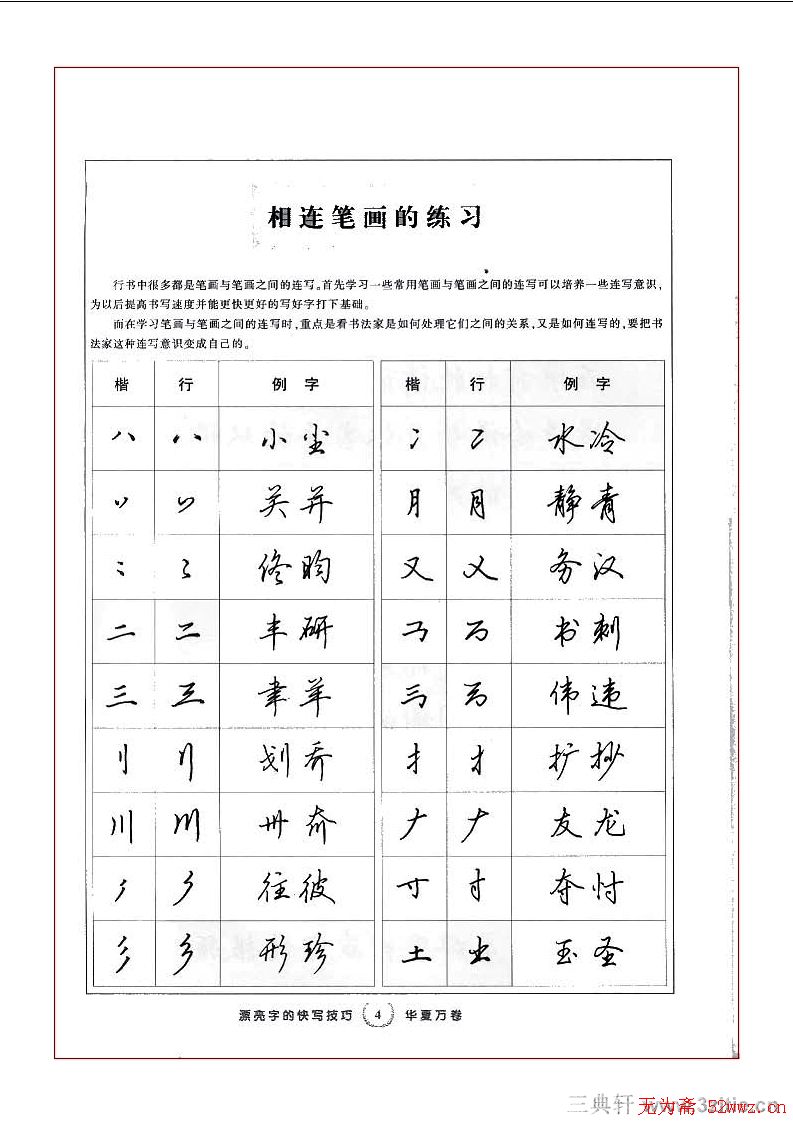 相连笔画的练习
行书中很多都是笔画与笔画之间的连写。首先学习一些常用笔画与笔画之间的连写可以培养一些连写意识,
为以后提高书写速度并能更快更好的写好字打下基础。
而在学习笔画与笔画之间的连写时,重点是看书法家是如何处理它们之间的关系,又是如何连写的,要把书
法家这种连写意识变成自己的。
楷 行 例字 楷 行 例字
小尘 水冷
关并 月 月 静青
佟昀 又 又 务汉
二 二 丰研 书刺
三 三 聿羊 伟违
刂 刂 划乔 扌 扌 扩抄
川 川 卅奔 𠂇 𠂇 友龙
往彼 寸 寸 夺忖
彡 彡 形珍 土 土 玉圣
漂亮字的快写技巧 4 华夏万卷
三典轩
无为斋 52wwz.cn